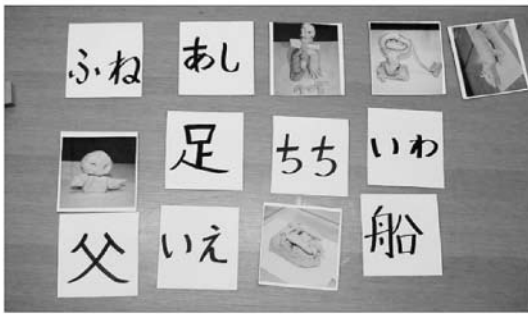 ふね
あし
足
ちち
いわ
父
いえ
船